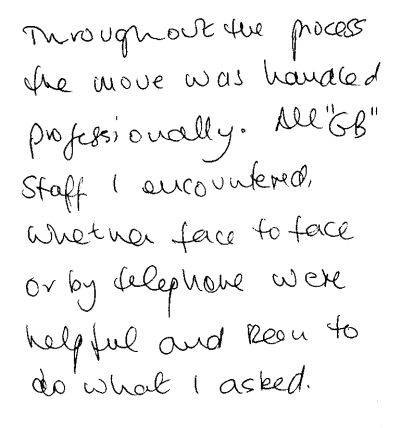 Throughout the process
the move was handled
professionally. All "GB"
Staff I encountered,
whether face to face
or by telephone were
helpful and keen to
do what I asked.